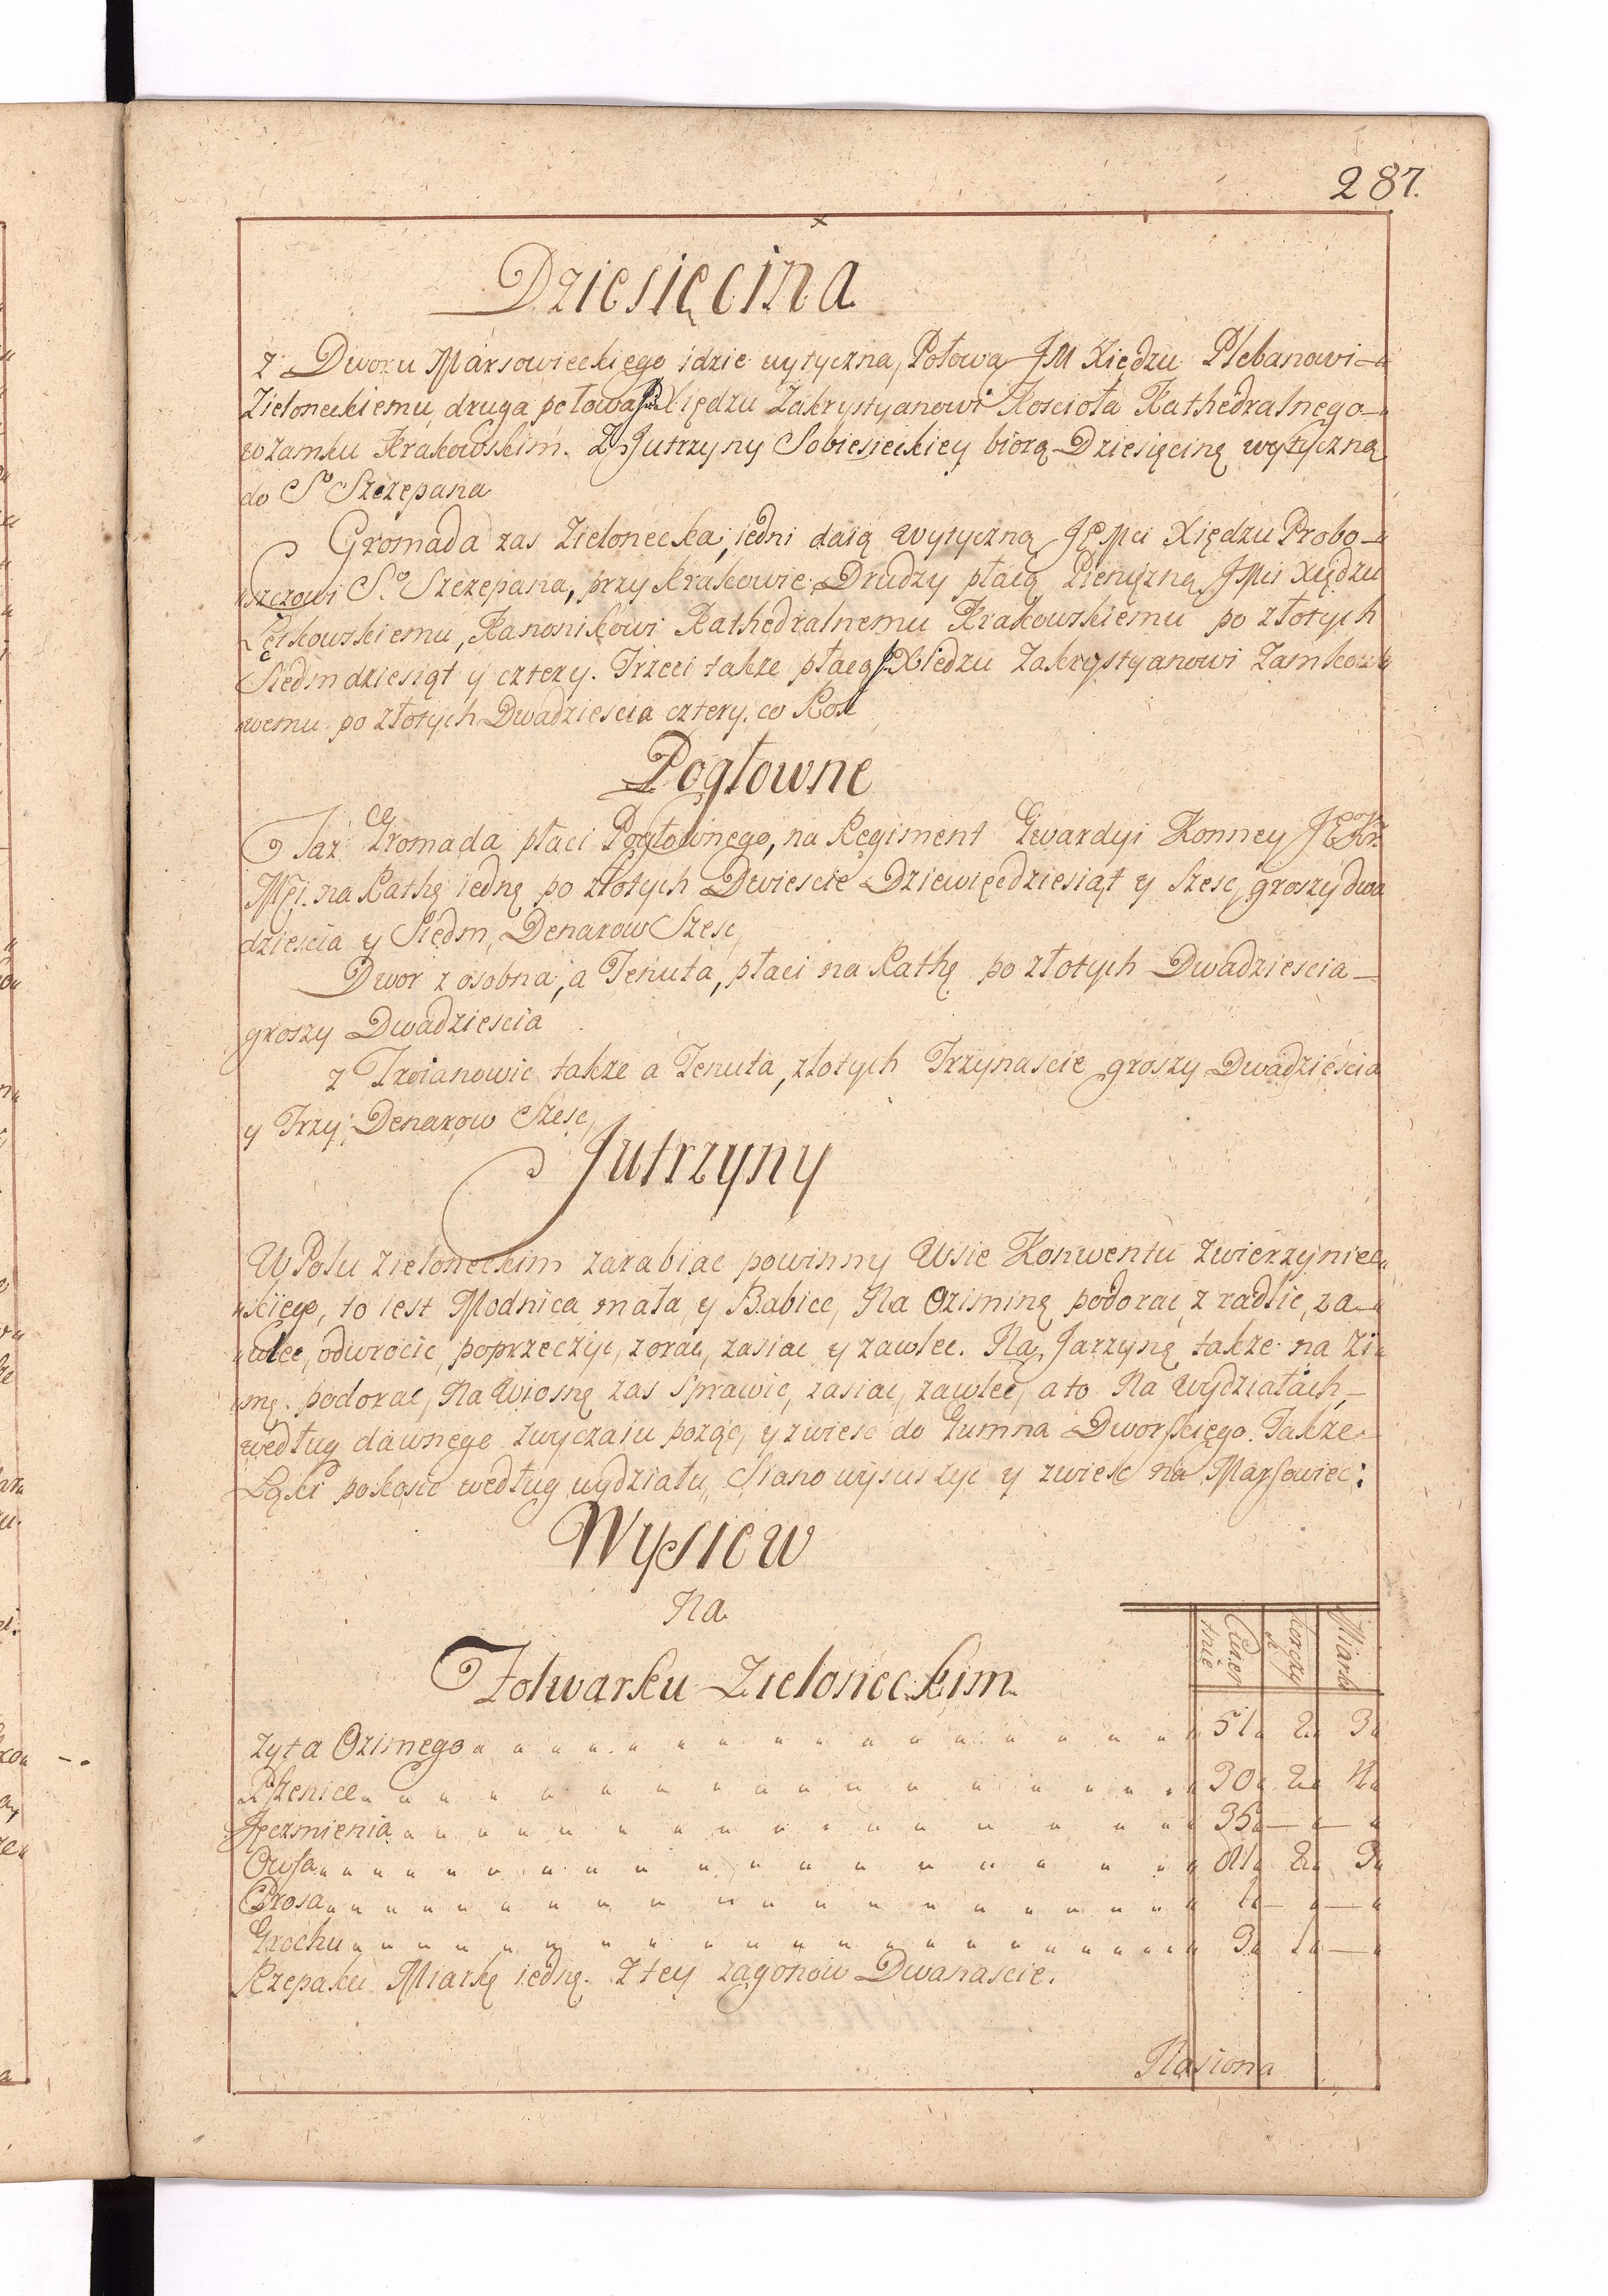 287.
Dziesięcina
z Dworu Marsowieckiego idzie wytyczna, Połowa JM Xiędzu Plebanowi
Zieloneckiemu, druga połowa Xiędzu Zakrystyanowi Koscioła Kathedralnego
w zamku Krakowskim. Z Jutrzyny Sobiesieckiey biorą Dziesięcinę wytyczną
do So Szczepana
Gromada zas Zielonecka, iedni daią wytyczną JEMci Xiędzu Probo-
szczowi So Szczepana, przy Krakowie. Drudzy płacą Pienięzną JMci Xiędzu
Kanonikowi Kathedralnemu Krakowskiemu po złotych
Siedmdziesiąt y cztery. Trzeci takze płacą Xiedzu Zakrystyanowi Zamko-
wemu po złotych Dwadziescia cztery. co Rok
Pogłowne
Taz Gromada płaci Pogłownego, na Regiment Gwardyi Konney
na Rathę iednę po złotych Dwiescie Dziewięcdziesiąt y szesc, groszy dwa
dziescia y Siedm, Denarow Szesc,
Dwor z osobna, a Tenuta, płaci na Rathę po złotych Dwadziescia
groszy Dwadziescia
z Troianowic takze a Tenuta, złotych Trzynascie groszy Dwadziescia
y Trzy, Denarow Szesc,
Jutrzyny
W Polu zieloneckim zarabiac powinny Wsie Konwentu zwierzyniec
skiego, to iest Modnica mała, y Babice, Na Oziminę podorac, z radlic, za-
wlec, odwrocic, poprzeczyc, zorac, zasiac y zawlec. Na Jarzynę takze na zi
mę podorac, Na wiosnę zas sprawic, zasiac, zawlec, a to Na wydziałach
według dawnego zwyczaiu pozqc, y zwiesc do Gumna Dworskiego. Takze
Łąki pokosic według wydziału, Siano wysuszyc y zwiesc na Marsowiec:
Wysiew
Na
Folwarku Zieloneckim
Cwier tnie Korczy Miark
Zyta Ozimego 51 2 3
Pszenice 30 2 4
Jęczmienia 35 — —
Owsa 81 2 3
Prosa 1 — —
Grochu 3 1 —
Rzepaku Miarkę iednę. Z tey zagonow Dwanascie.
Nasiona